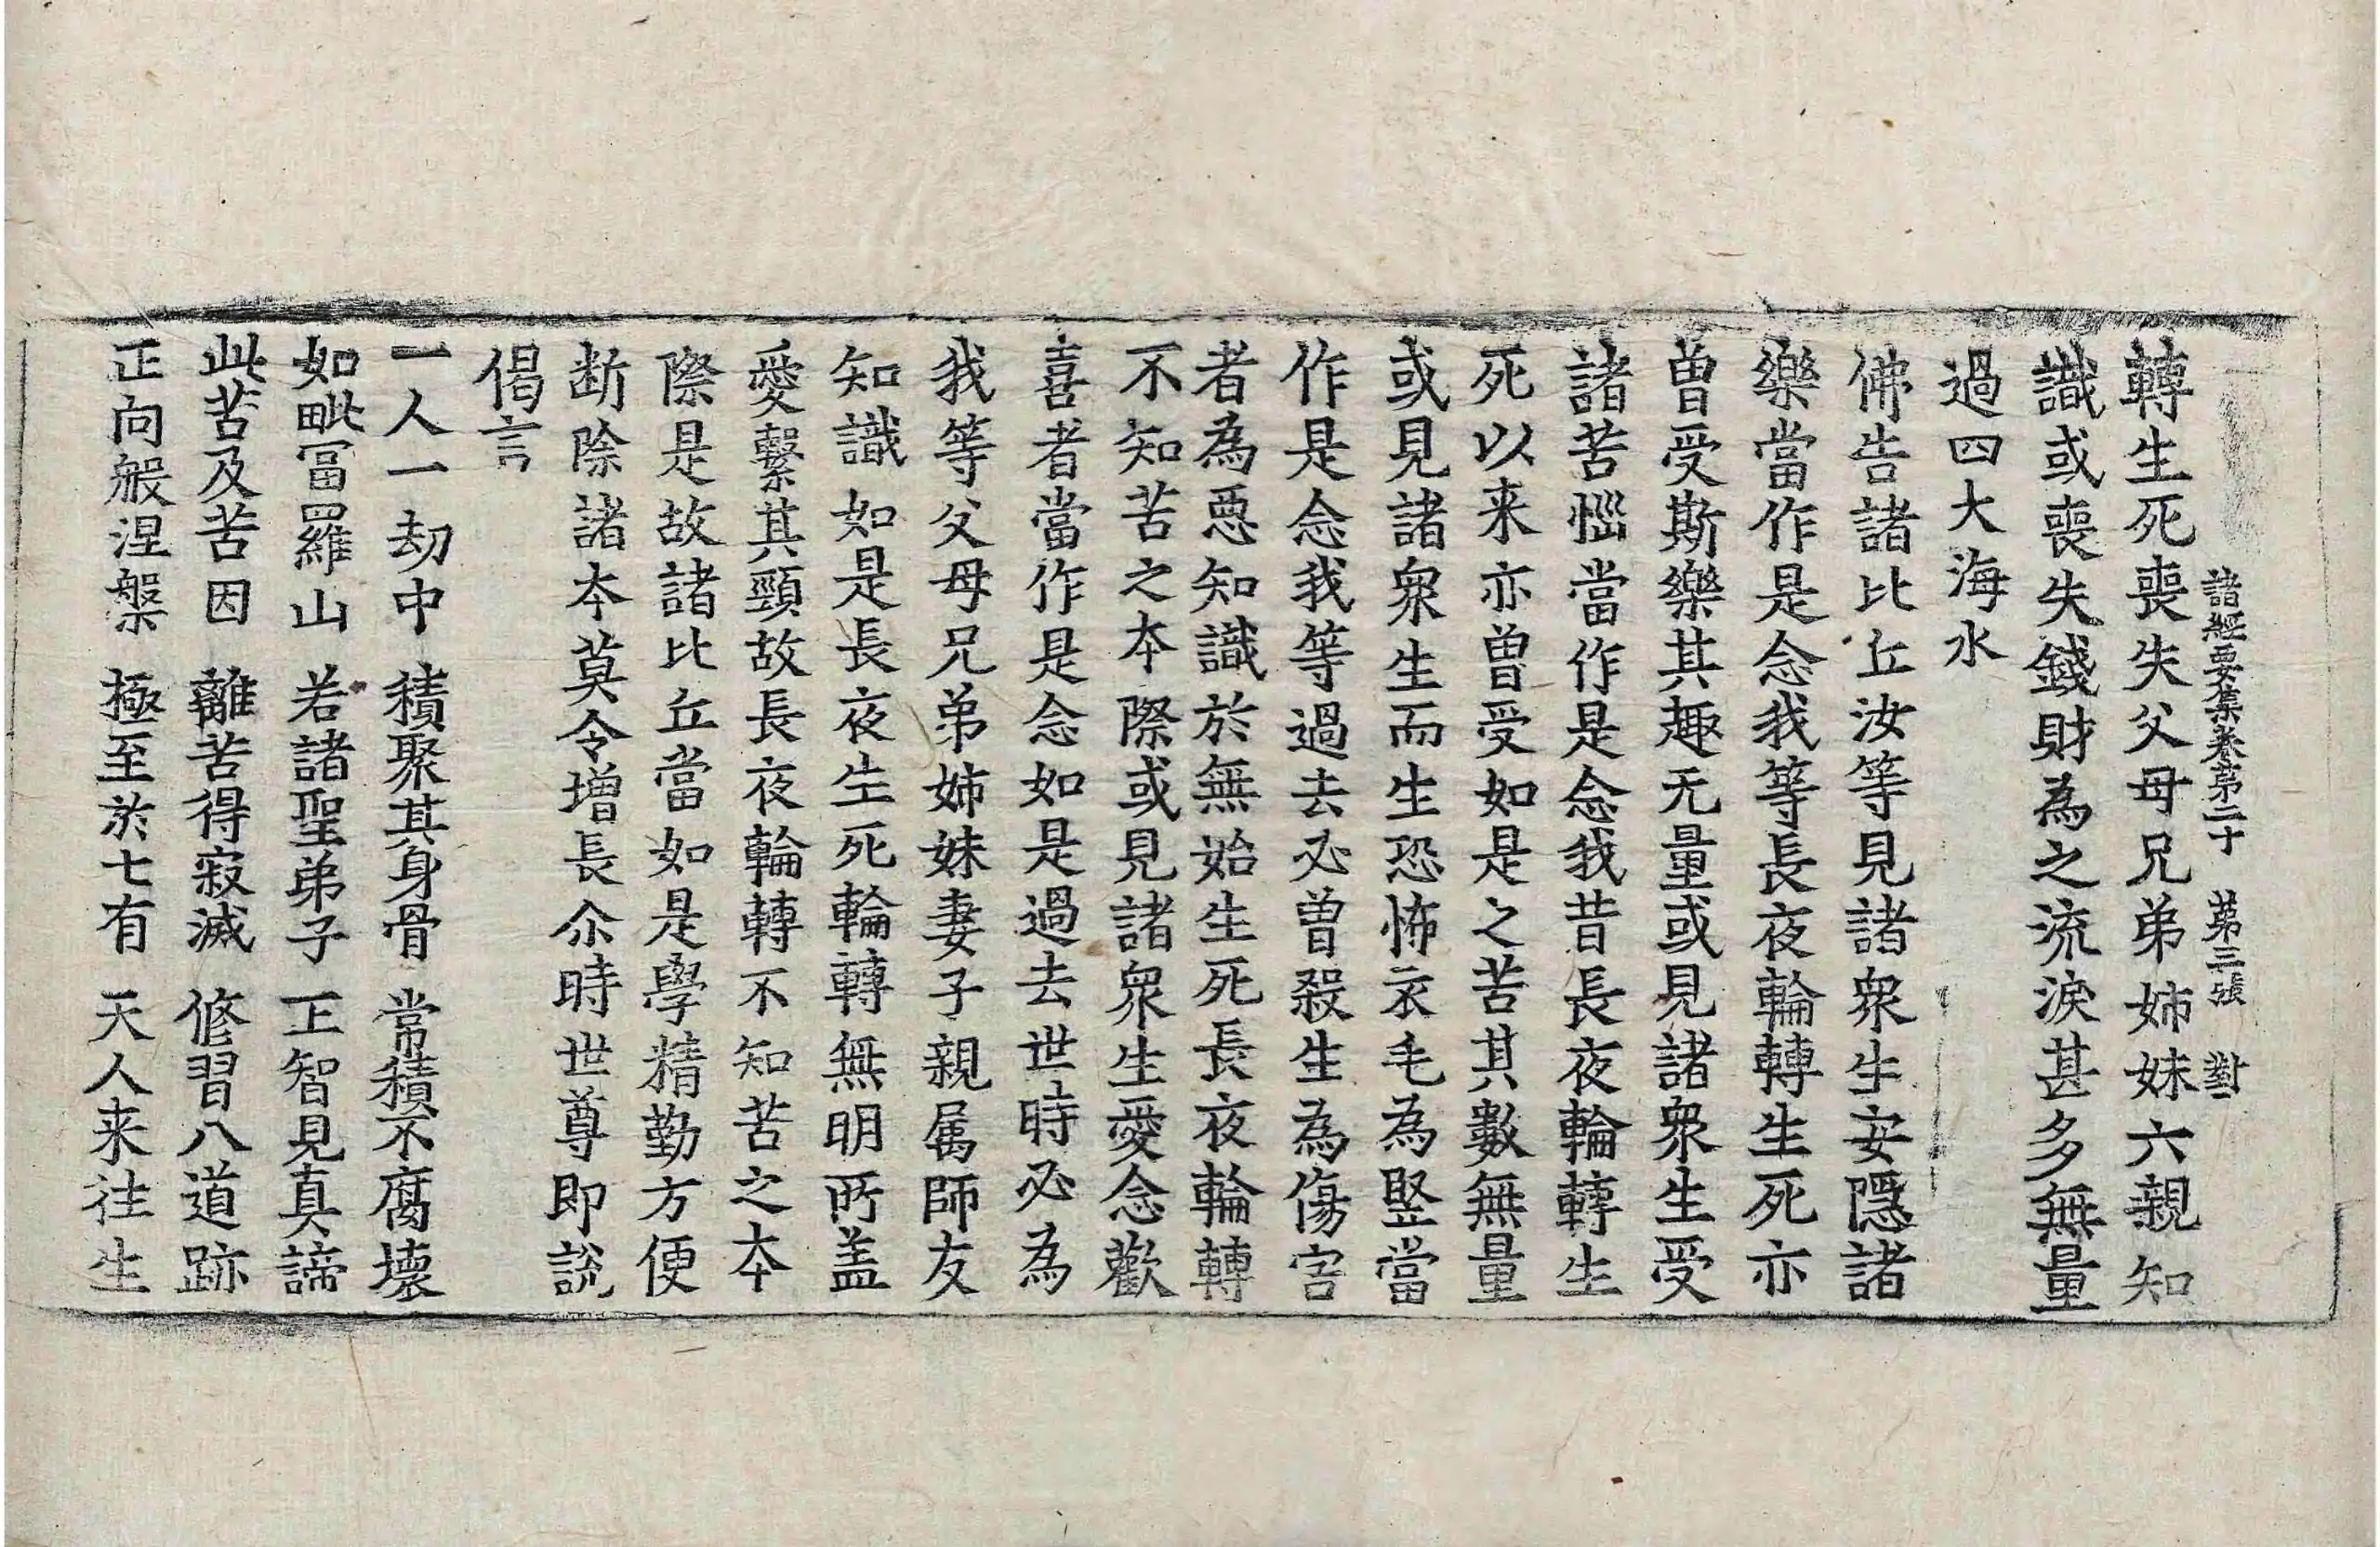 諸經要集卷第二十 第三張 對
轉生死喪失父母兄弟姉妹六親知
識或喪失錢財為之流淚甚多無量
過四大海水
佛告諸比丘汝等見諸衆生安隱諸
樂當作是念我等長夜輪轉生死亦
曽受斯樂其趣无量或見諸衆生受
諸苦惱當作是念我昔長夜輪轉生
死以来亦曽受如是之苦其數無量
或見諸衆生而生恐怖衣毛為竪當
作是念我等過去必曽殺生為傷害
者為惡知識於無始生死長夜輪轉
不知苦之本際或見諸衆生愛念歡
喜者當作是念如是過去世時必為
我等父母兄弟姉妹妻子親属師友
知識如是長夜生死輪轉無明所盖
愛繫其頸故長夜輪轉不知苦之本
際是故諸比丘當如是學精勤方便
断除諸本莫令增長尒時世尊即說
偈言
一人一劫中 積聚其身骨 常積不腐壞
如毗冨羅山 若諸聖弟子 正智見真諦
此苦及苦因 離苦得寂滅 修習八道跡
正向般涅槃 極至於七有 天人来往生